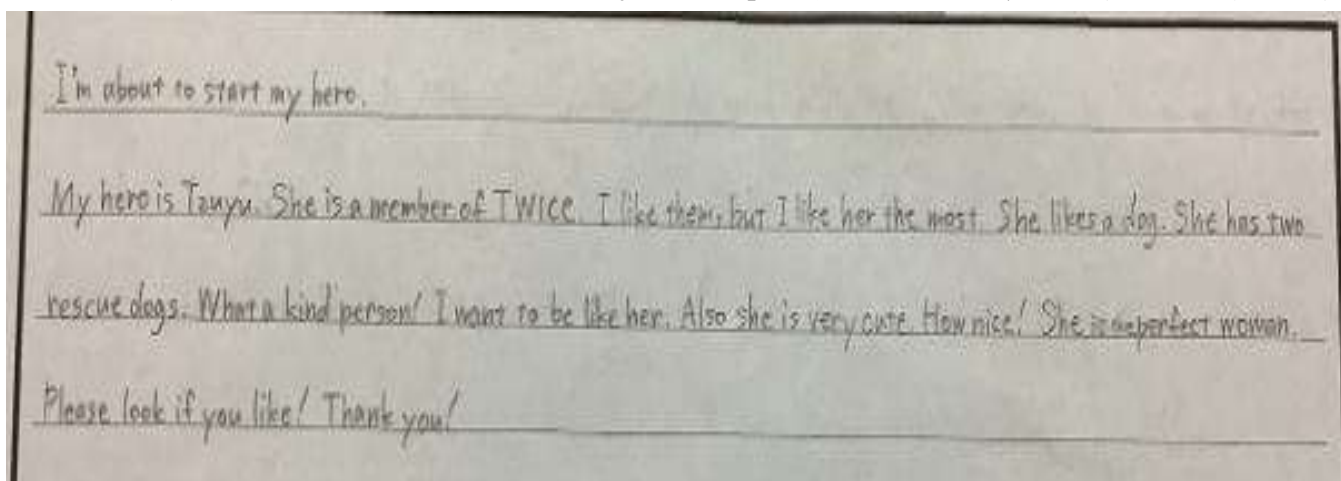 I'm about to start my hero.
My hero is Tzuyu. She is a member of TWICE. I like them, but I like her the most. She likes a dog. She has two
rescue dogs. What a kind person! I want to be like her. Also she is very cute. How nice! She is perfect woman.
Please look if you like! Thank you!